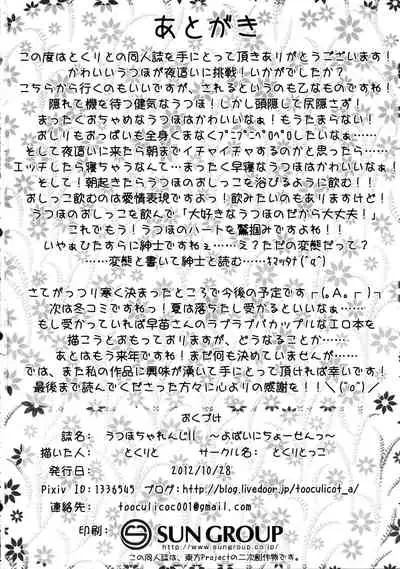 あとがき
この度はとくりとの同人誌を手にとって頂きありがとうございます！
かわいいうつほが夜這いに挑戦！いかがでしたか？
こちらから行くのもいいですが、されるというのも乙なものですね！
隠れて機を待つ健気なうつほ！しかし頭隠して尻隠さず！
まったくおちゃめなうつほはかわいいなぁ！もうたまらない！
おしりもおっぱいも全身くまなくﾌﾟﾆﾌﾟﾆﾍﾟﾛﾍﾟﾛしたいなぁ……
そして夜這いに来たら朝までイチャイチャするのかと思ったら…
エッチしたら寝ちゃうなんて…まったく早寝なうつほはかわいいなぁ！
そして！朝起きたらうつほのおしっこを浴びるように飲む！！
おしっこ飲むのは愛情表現ですよっ！飲みたいのもありますけど！
うつほのおしっこを飲んで「大好きなうつほのだから大丈夫！」
これでもう！うつほのハートを鷲掴みですよね！！
いやぁひたすらに紳士ですねぇ……え？ただの変態だって？
……変態と書いて紳士と読む……ｷﾏｯﾀﾅ(｀α´)
さてがっつり寒く決まったところで今後の予定です┌(。A。┌)┐
次は冬コミですねっ！夏は落ちたし受かるといいなぁ…
もし受かっていれば早苗さんのラブラブバカップルなエロ本を
描こうとおもっておりますが、どうなることか…
あとはもう来年ですね！まだ何も決めていませんが……
では、また私の作品に興味が湧いて手にとって頂ければ幸いです！
最後まで読んでくださった方々に心よりの感謝を！！＼(^o^)／
おくづけ
誌名： うつほちゃれんじ!! ～よばいにちょーせんっ～
描いた人： とくりと サークル名： とくりとっこ
発行日： 2012/10/28
Pixiv ID: 1336545 ブログ：http://blog.livedoor.jp/tooculicot_a/
連絡先： tooculicoc001@gmail.com
印刷： SUN GROUP
http://www.sungroup.co.jp/
この同人誌は、東方Projectの二次創作物です。